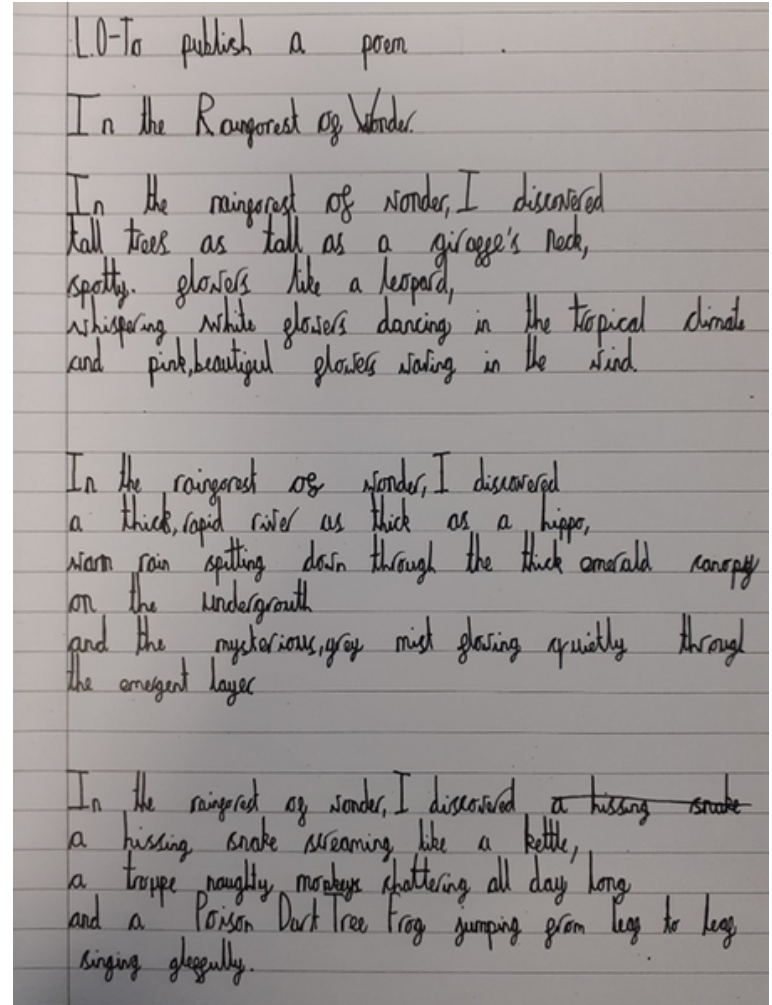 L.O-To publish a poem .
In the Rainforest of Wonder.
In the rainforest of wonder, I discovered
tall trees as tall as a giraffe's neck,
spotty. flowers like a leopard,
whispering white flowers dancing in the tropical climate
and pink, beautiful flowers waving in the wind.
In the rainforest of wonder, I discovered
a thick, rapid river as thick as a hippo,
warm rain spitting down through the thick emerald canopy
on the undergrouth
and the mysterious, grey mist flowing quietly through
the emergent layer
In the rainforest of wonder, I discovered a hissing snake
a hissing snake screaming like a kettle,
a troppe naughty monkeys chattering all day long
and a Poison Dart Tree Frog jumping from leaf to leaf
singing gleefully.